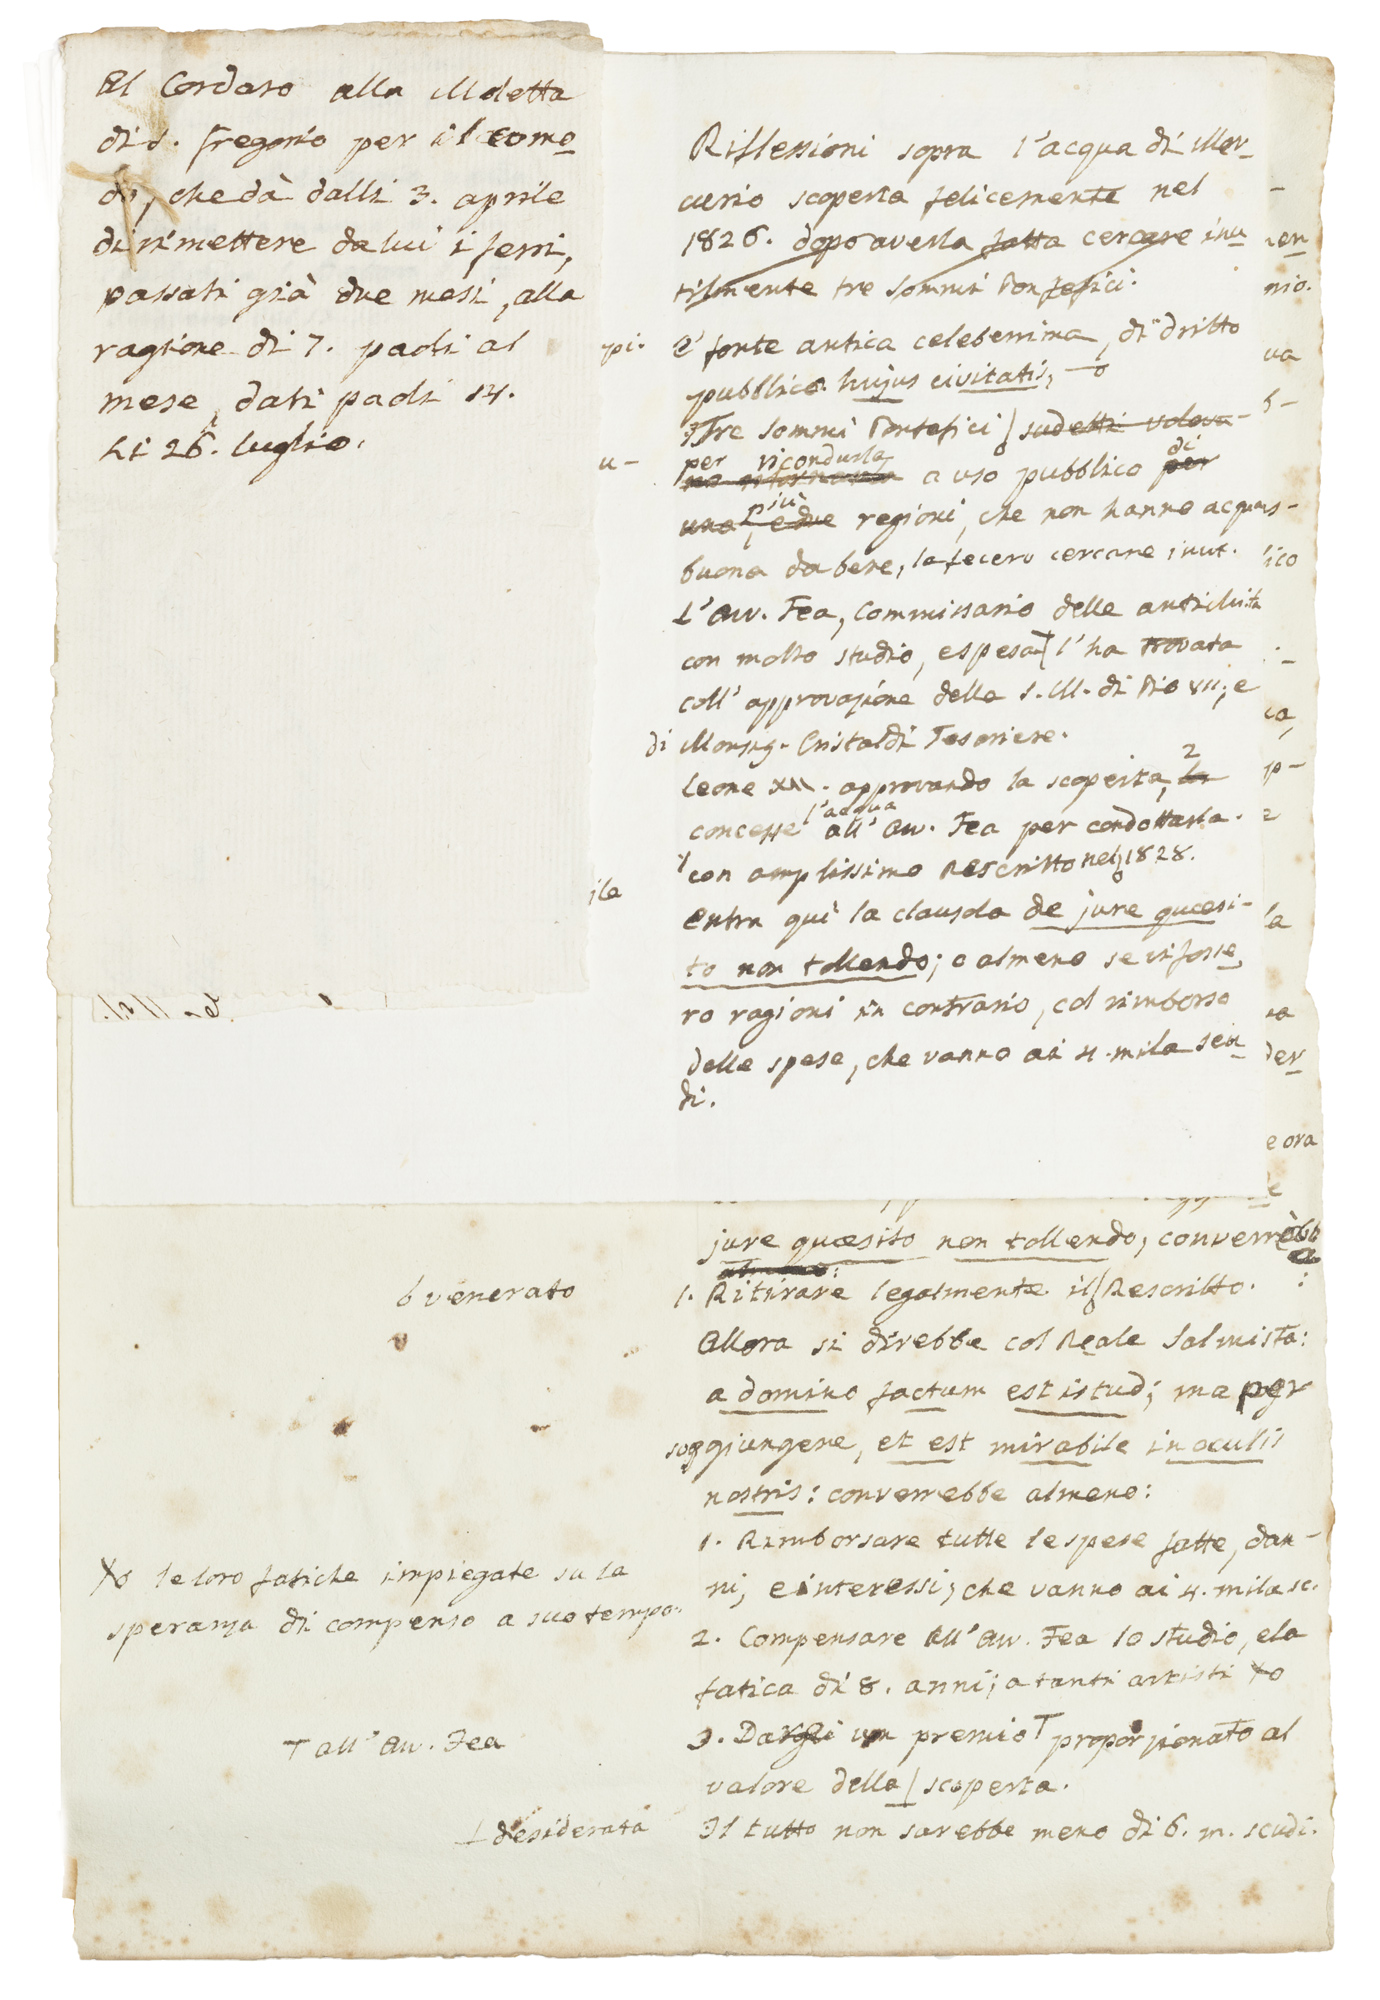 Al Cordaro alla Moletta
di S. Gregorio per il como
do, che dà dalli 3. aprile
di rimettere da lui i ferri,
passati già due mesi, alla
ragione di 7. paoli al
mese, dati paoli 14.
Li 26. luglio.
Riflessioni sopra l'acqua di Mer-
curio scoperta felicemente nel
1826. dopo averla fatta cercare inu
tilmente tre Sommi Pontefici.
È fonte antica celeberrima, di dritto
pubblico hujus civitatis,
Tre Sommi Pontefici sudetti voleva-
per ricondurla a uso pubblico per di
una, e due più regioni, che non hanno acqua
buona da bere, la fecero cercare inut.
L'Avv. Fea, Commissario delle antichità
con molto studio, e spesa l'ha trovata
coll'approvazione della S. M. di Pio VII, e
di Monsig. Cristaldi Tesoriere.
Leone XII. approvando la scoperta, la 2
concesse l'acqua all'Avv. Fea per condottarla.
con amplissimo Rescritto nel 1828.
Entra quì la clausola de jure quæsi-
to non tollendo; o almeno se vi fosse
ro ragioni in contrario, col rimborso
delle spese, che vanno ai 4. mila scu
di.
pi.
u-
ila
nio.
va
ico
ca,
p-
e
la
na
der
e ora
jure quæsito non tollendo, converrebb
almeno:
1. Ritirare legalmente il Rescritto.
6 venerato
Allora si direbbe col Reale Salmista:
a domino factum est istud; ma per
soggiungere, et est mirabile in oculis
nostris: converrebbe almeno:
1. Rimborsare tutte le spese fatte, dan-
ni, e interessi, che vanno ai 4. mila sc.
2. Compensare all'Avv. Fea lo studio, e la
fatica di 8. anni; a tanti artisti
le loro fatiche impiegate su la
speranza di compenso a suo tempo.
3. Dargli un premio proporzionato al
all'Avv. Fea
valore della scoperta.
desiderata
Il tutto non sarebbe meno di 6. m. scudi.